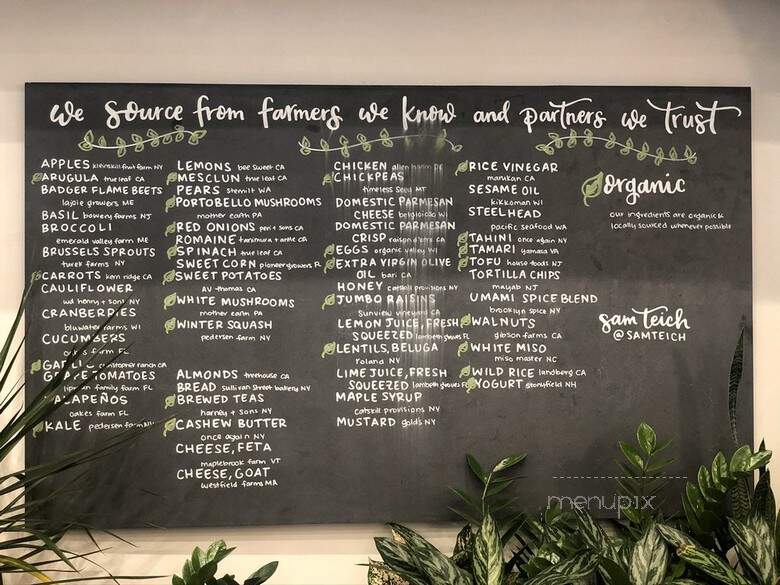 we source from farmers we know and partners we trust
APPLES kleinskill fruit farm NY
ARUGULA true leaf CA
BADGER FLAME BEETS
lajoie growers ME
BASIL bowery farms NJ
BROCCOLI
emerald valley farm ME
BRUSSELS SPROUTS
turek farms NY
CARROTS kern ridge CA
CAULIFLOWER
wd henry + sons NY
CRANBERRIES
bluewater farms WI
CUCUMBERS
farms FL
GARLIC christopher ranch CA
GRAPE TOMATOES
lipman family farm FL
JALAPEÑOS
oakes farm FL
KALE pedersen farm NY
LEMONS bee sweet CA
MESCLUN true leaf CA
PEARS stemilt WA
PORTOBELLO MUSHROOMS
mother earth PA
RED ONIONS peri + sons CA
ROMAINE tanimura + antle CA
SPINACH true leaf CA
SWEET CORN pioneer growers FL
SWEET POTATOES
AV thomas CA
WHITE MUSHROOMS
mother earth PA
WINTER SQUASH
pedersen farm NY
ALMONDS treehouse CA
BREAD sullivan street bakery NY
BREWED TEAS
harney + sons NY
CASHEW BUTTER
once again NY
CHEESE, FETA
maplebrook farm VT
CHEESE, GOAT
westfield farms MA
CHICKEN allen harim
CHICKPEAS
timeless seed MT
DOMESTIC PARMESAN
CHEESE belgioioso WI
DOMESTIC PARMESAN
CRISP
EGGS organic valley WI
EXTRA VIRGIN OLIVE
OIL bari CA
HONEY catskill provisions NY
JUMBO RAISINS
sunview vineyard CA
LEMON JUICE, FRESH
SQUEEZED lambeth groves FL
LENTILS, BELUGA
roland NY
LIME JUICE, FRESH
SQUEEZED lambeth groves FL
MAPLE SYRUP
catskill provisions NY
MUSTARD gold's NY
RICE VINEGAR
marukan CA
SESAME OIL
kikkoman WI
STEELHEAD
pacific seafood WA
TAHINI once again NY
TAMARI yamasa VA
TOFU house foods NJ
TORTILLA CHIPS
mayab NJ
UMAMI SPICE BLEND
brooklyn spice NY
WALNUTS
gibson farms CA
WHITE MISO
miso master NC
WILD RICE landberg CA
YOGURT stonyfield NH
organic
our ingredients are organic &
locally sourced whenever possible
sam teich
@SAMTEICH
menupix